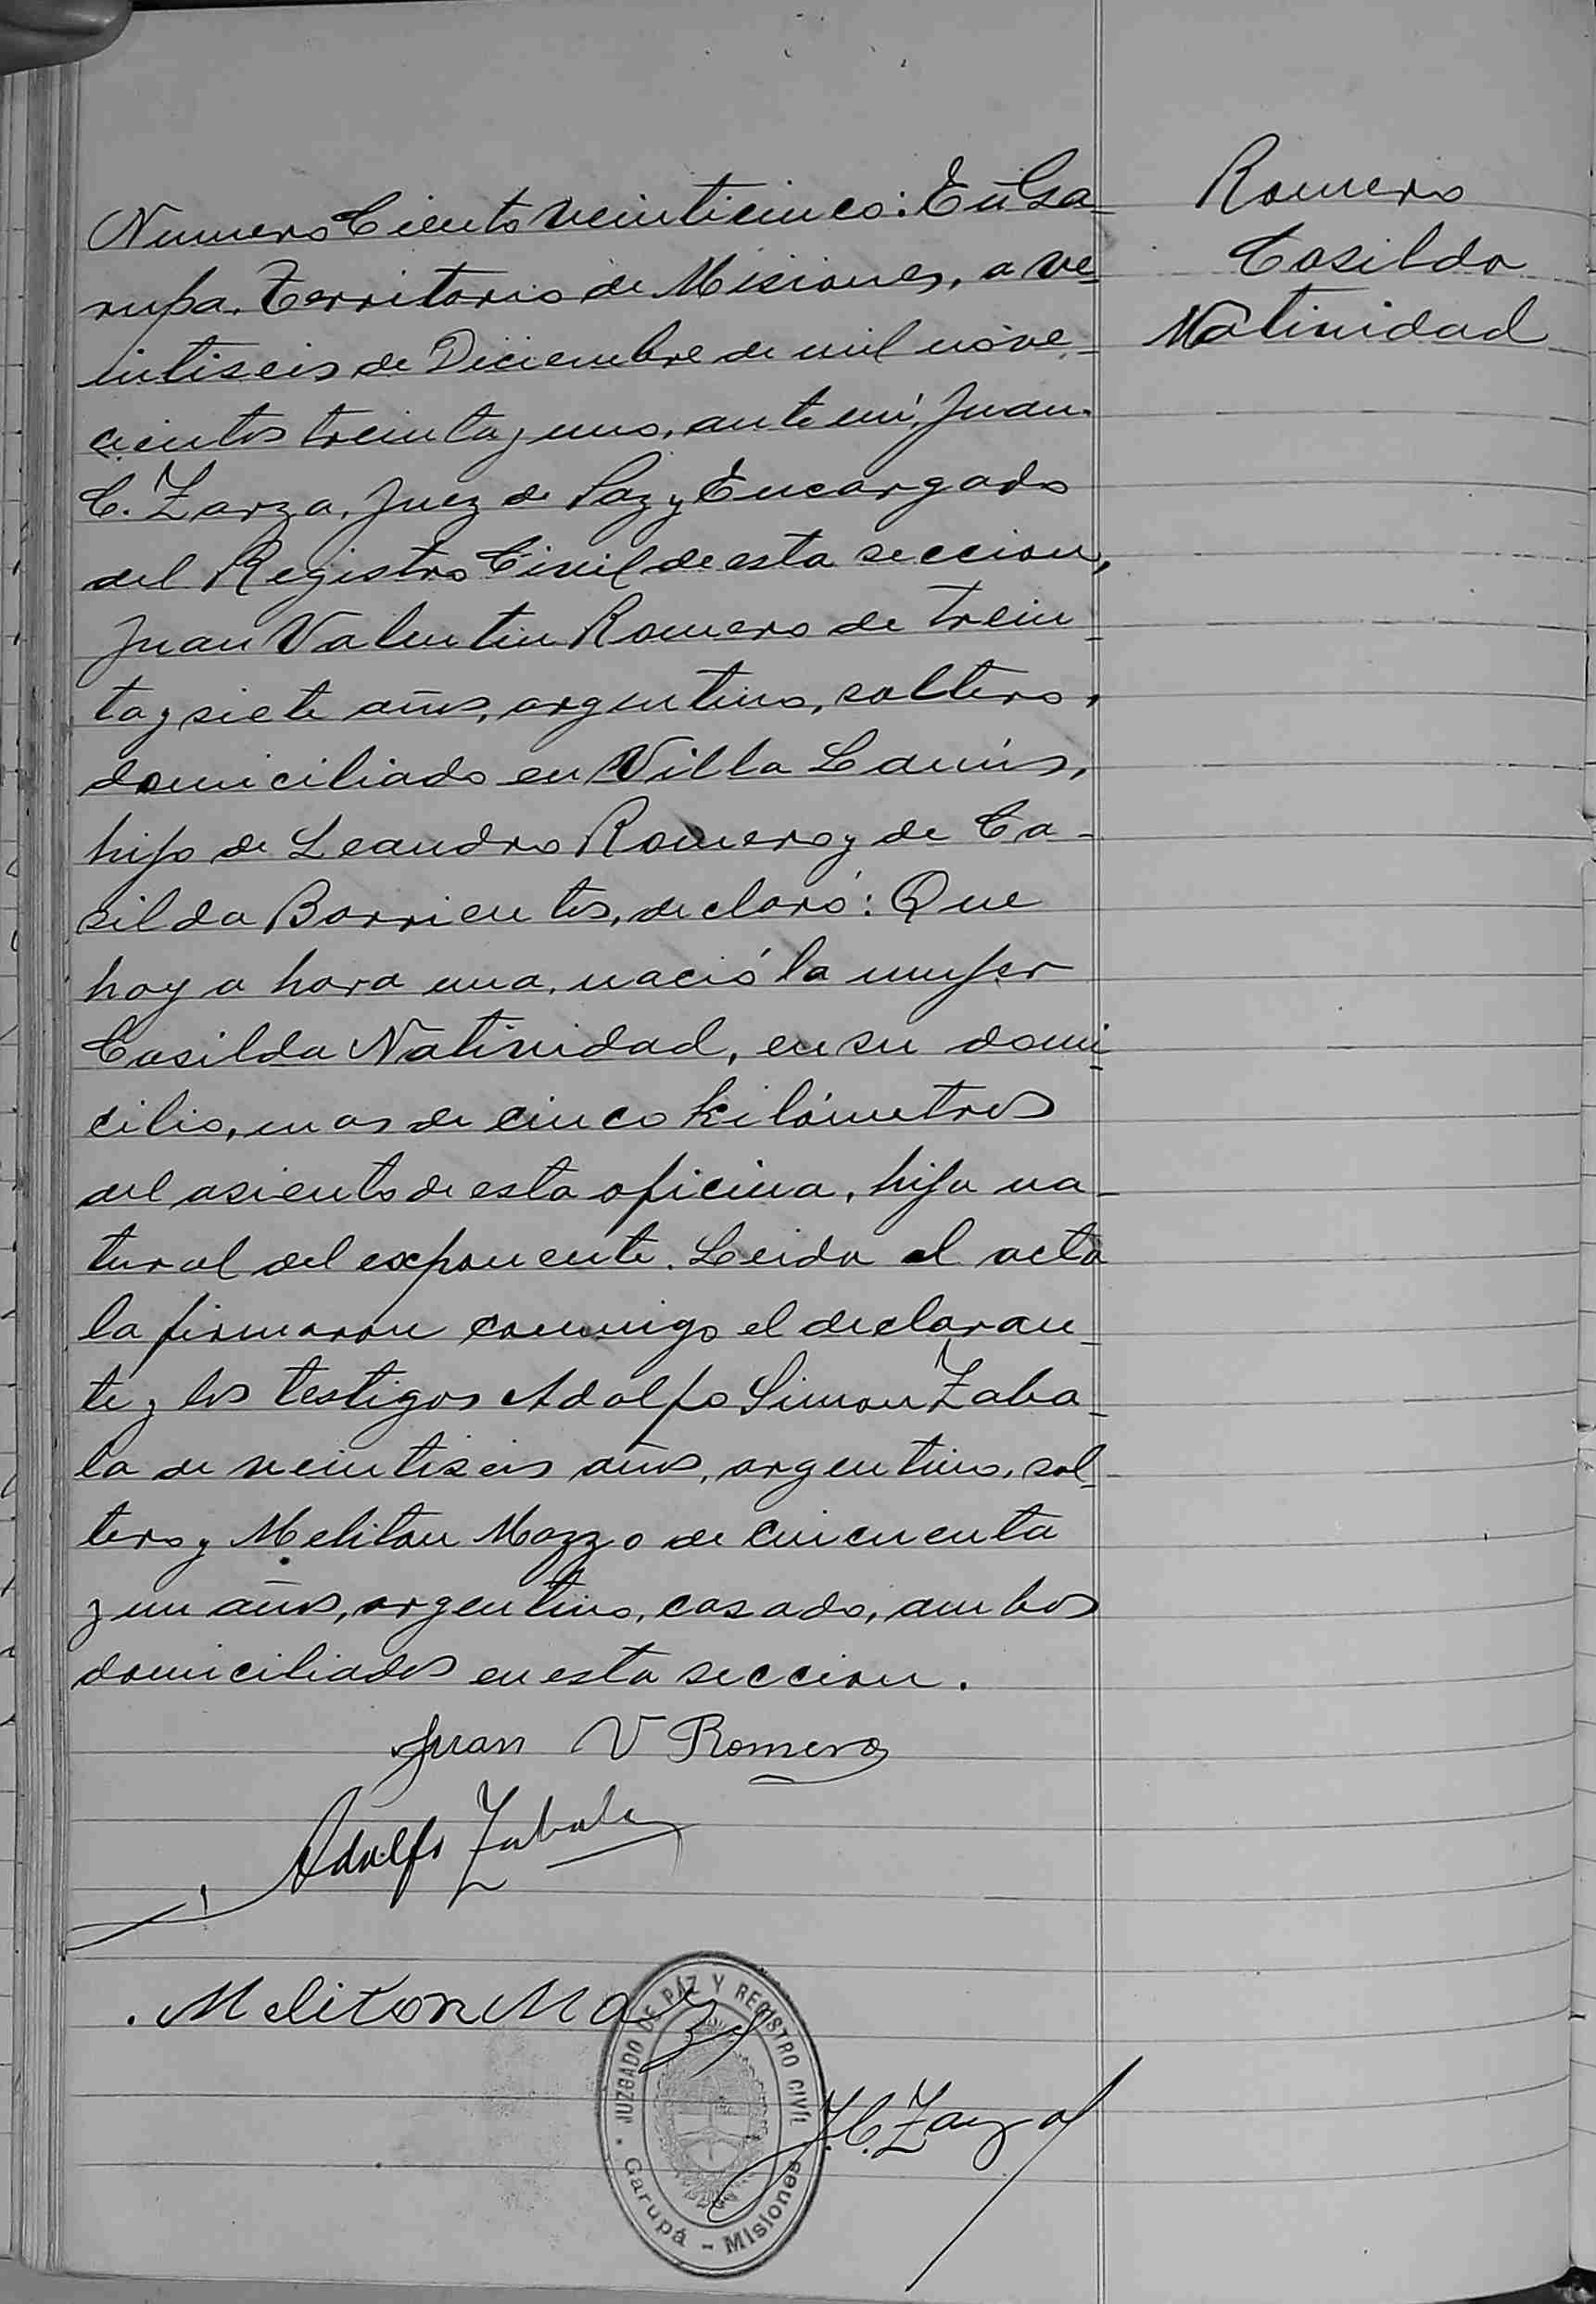 Romero
Casilda
Natividad
Numero Ciento veinticinco: En Ga-
rupa, Territorio de Misiones, a ve-
intiseis de Diciembre de mil nove-
cientos treinta y uno, ante mi, Juan
C. Zarza, Juez de Paz y Encargado
del Registro Civil de esta seccion,
Juan Valentin Romero de trein-
ta y siete años, argentino, soltero,
domiciliado en Villa Lanús,
hijo de Leandro Romero y de Ca-
silda Barrientos, declaró: Que
hoy a hora una, nació la mujer
Casilda Natividad, en su domi-
cilio, mas de cinco kilómetros
del asiento de esta oficina, hija na-
tural del exponente. Leida el acta
la firmaron conmigo el declaran-
te y los testigos Adolfo Simon Zaba-
la de veintiseis años, argentino, sol-
tero y Meliton Mazzo de cincuenta
y un años, argentino, casado, ambos
domiciliados en esta seccion.
Juan V Romero
Adolfo Zabala
Meliton
JUZGADO DE PAZ Y REGISTRO CIVIL
Garupá - Misiones
J. C. Zarza